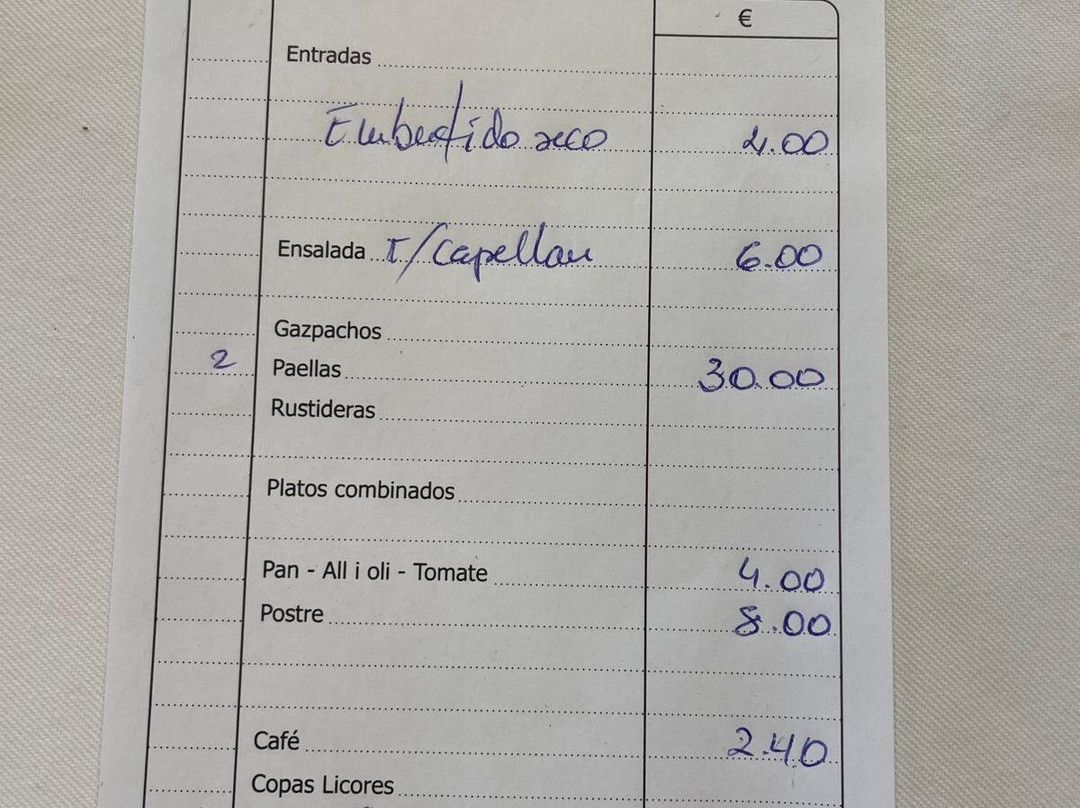 €
Entradas
Embutido seco 4.00
Ensalada T/Capellan 6.00
Gazpachos
2 Paellas 30.00
Rustideras
Platos combinados
Pan - All i oli - Tomate 4.00
Postre 8.00
Café 2.40
Copas Licores